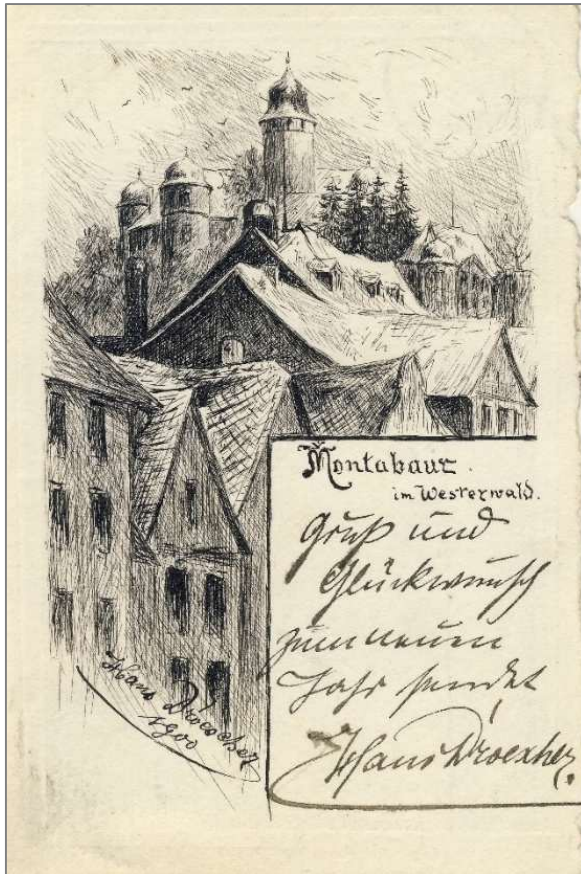 Montabaur.
im Westerwald.
Gruß und
Glückwunsch
zum neuen
Jahr sendet
Hans Droescher.
Hans Droescher
1900